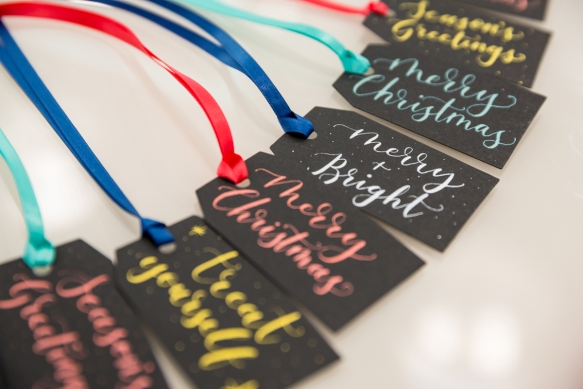 Season's
Greetings
Merry
Christmas
Merry
+
Bright
Merry
Christmas
treat
yourself
Season's
Greetings